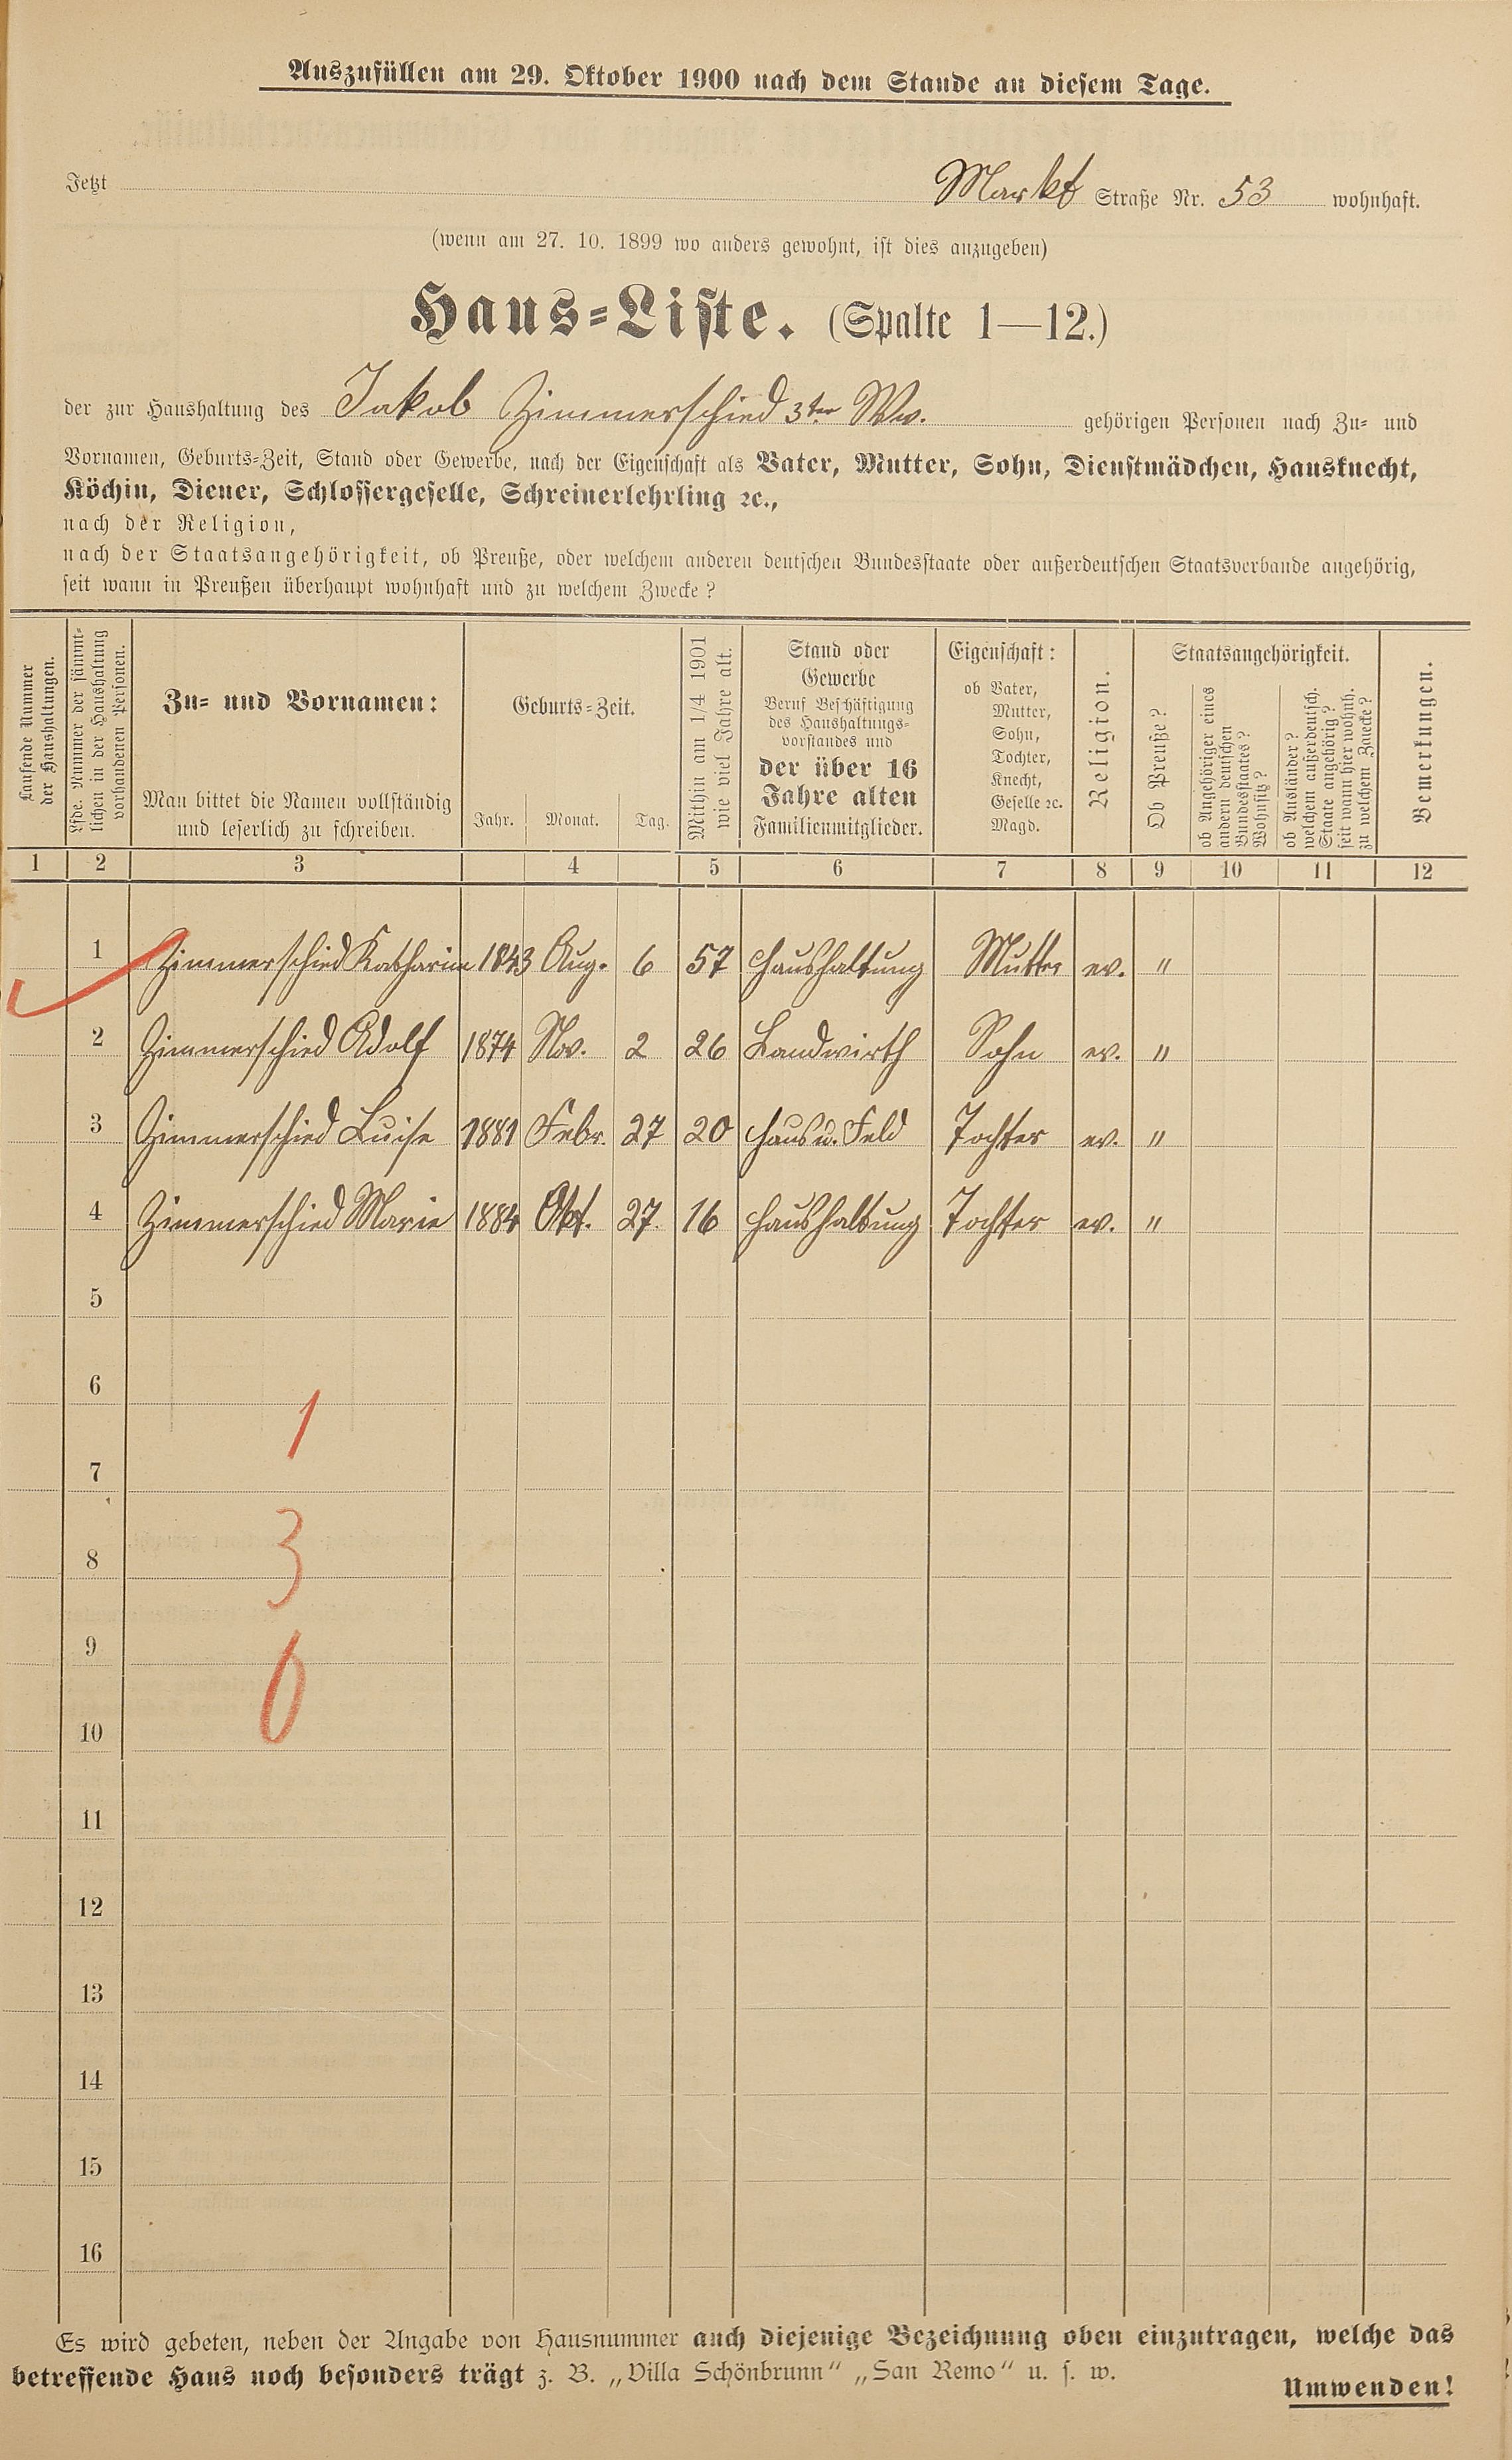 Auszufüllen am 29. Oktober 1900 nach dem Stande an diesem Tage.
Jetzt Markt Straße Nr. 53 wohnhaft.
(wenn am 27. 10. 1899 wo anders gewohnt, ist dies anzugeben)
Haus-Liste. (Spalte 1—12.)
der zur Haushaltung des Jakob Zimmerschied 3ter Ww. gehörigen Personen nach Zu- und
Vornamen, Geburts-Zeit, Stand oder Gewerbe, nach der Eigenschaft als Vater, Mutter, Sohn, Dienstmädchen, Hausknecht,
Köchin, Diener, Schlossergeselle, Schreinerlehrling ꝛc.,
nach der Religion,
nach der Staatsangehörigkeit, ob Preuße, oder welchem anderen deutschen Bundesstaate oder außerdeutschen Staatsverbande angehörig,
seit wann in Preußen überhaupt wohnhaft und zu welchem Zwecke?
Laufende Nummer
der Haushaltungen.
Lfde. Nummer der sämmt-
lichen in der Haushaltung
vorhandenen Personen.
Zu- und Vornamen:
Man bittet die Namen vollständig
und leserlich zu schreiben.
Geburts-Zeit.
Jahr. Monat. Tag.
Mithin am 1/4 1901
wie viel Jahre alt.
Stand oder
Gewerbe
Beruf Beschäftigung
des Haushaltungs-
vorstandes und
der über 16
Jahre alten
Familienmitglieder.
Eigenschaft:
ob Vater,
Mutter,
Sohn,
Tochter,
Knecht,
Geselle ꝛc.
Magd.
Religion.
Staatsangehörigkeit.
Ob Preuße?
ob Angehöriger eines
andern deutschen
Bundesstaates?
Wohnsitz?
ob Ausländer?
welchem außerdeutsch.
Staate angehörig?
seit wann hier wohnh.
zu welchem Zwecke?
Bemerkungen.
1 2 3 4 5 6 7 8 9 10 11 12
1 Zimmerschied Katharine 1843 Aug. 6 57 Haushaltung Mutter ev. "
2 Zimmerschied Adolf 1874 Nov. 2 26 Landwirth Sohn ev. "
3 Zimmerschied Luise 1881 Febr. 27 20 Haus u. Feld Tochter ev. "
4 Zimmerschied Marie 1884 Okt. 27. 16 Haushaltung Tochter ev. "
5
6
1
7
8
3
9
0
10
11
12
13
14
15
16
Es wird gebeten, neben der Angabe von Hausnummer auch diejenige Bezeichnung oben einzutragen, welche das
betreffende Haus noch besonders trägt z. B. „Villa Schönbrunn" „San Remo" u. s. w.
Umwenden!